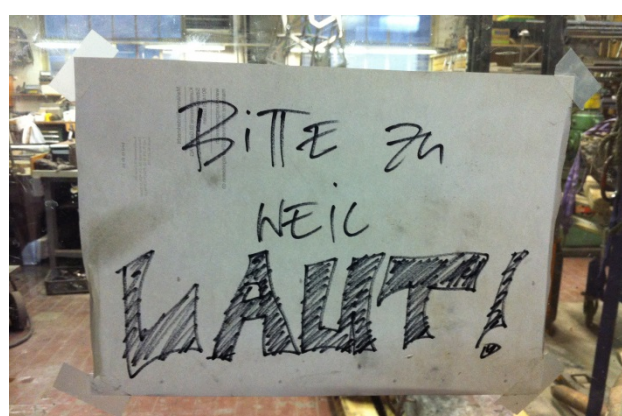 BiTTE zu
WEiL
LAUT!